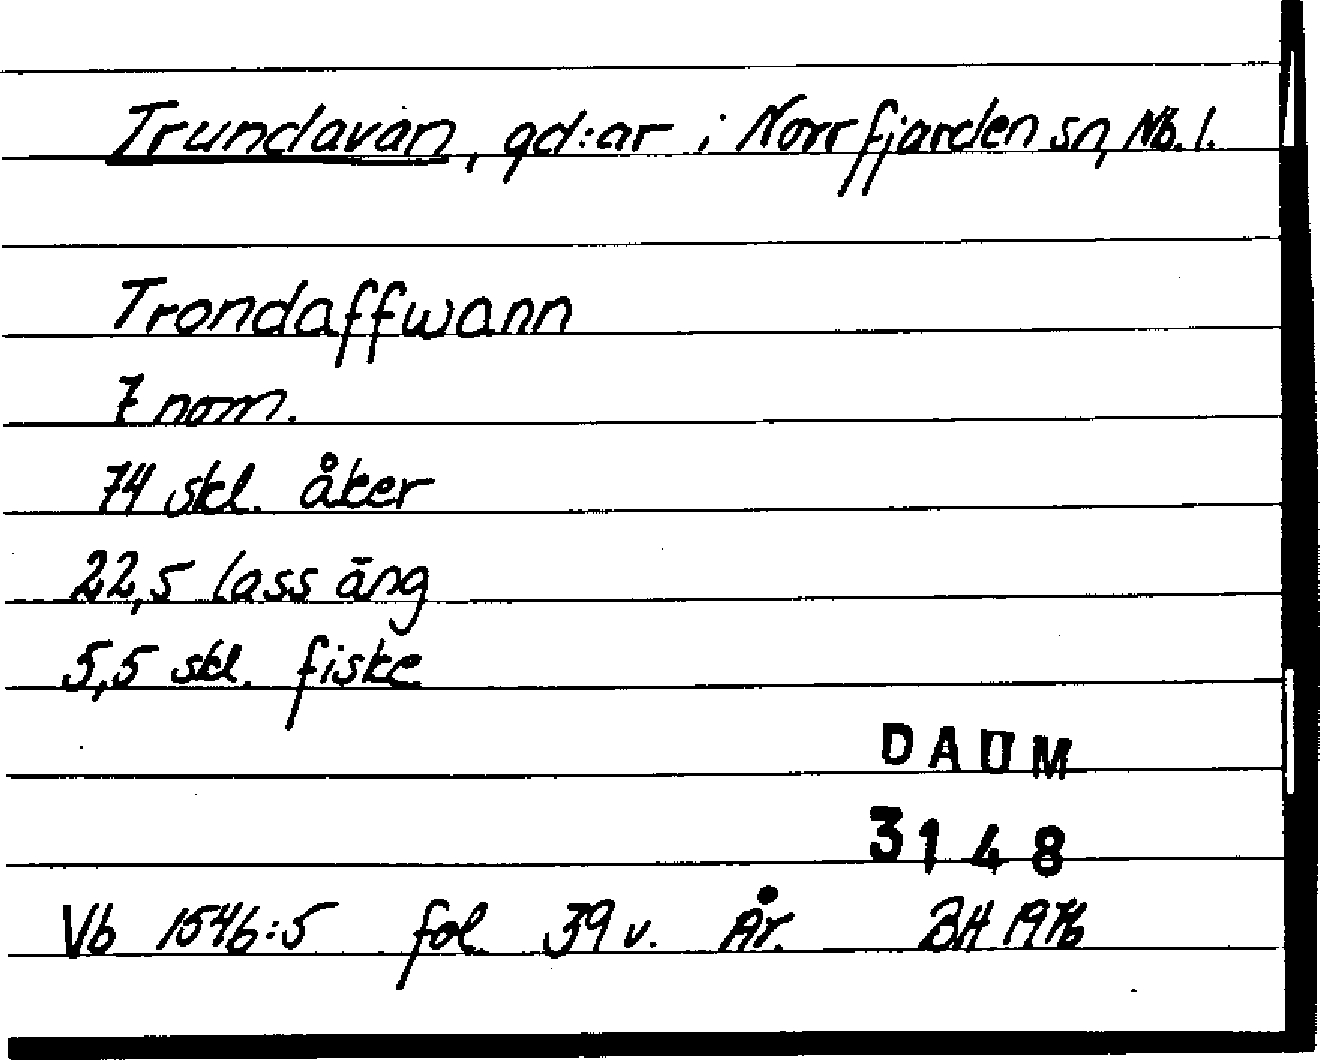 Trundavan, gd:ar i Norrfjärden sn, Nb. l.
Trondaffwann
7 nom.
74 skl. åker
22,5 lass äng
5,5 skl. fiske
DAUM
3148
Vb 1546:5 fol 39 v. År. BH 1976